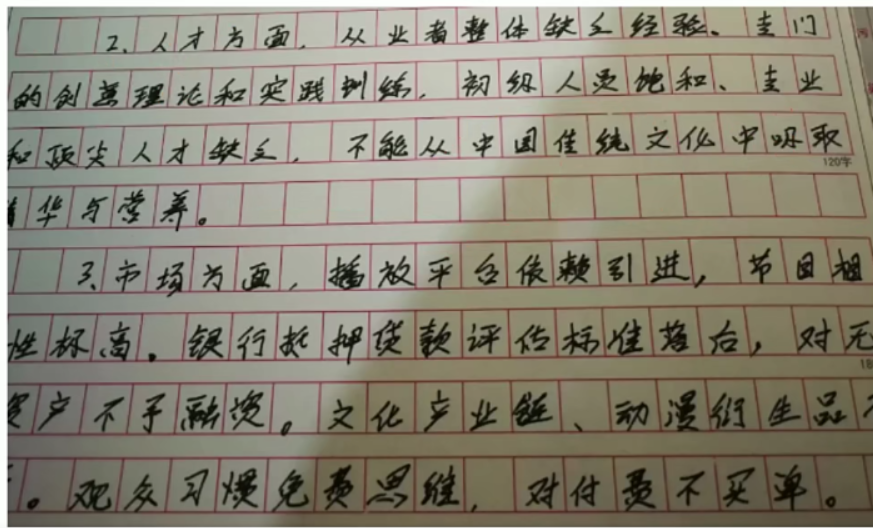 2、人才方面,从业者整体缺乏经验、专门
的创意理论和实践训练,初级人员饱和、专业
和顶尖人才缺乏,不能从中国传统文化中吸取
120字
华与营养。
3、市场方面,播放平台依赖引进,节目相
性高。银行抵押贷款评估标准落后,对无
资产不予融资。文化产业链、动漫衍生品
。观众习惯免费思维,对付费不买单。